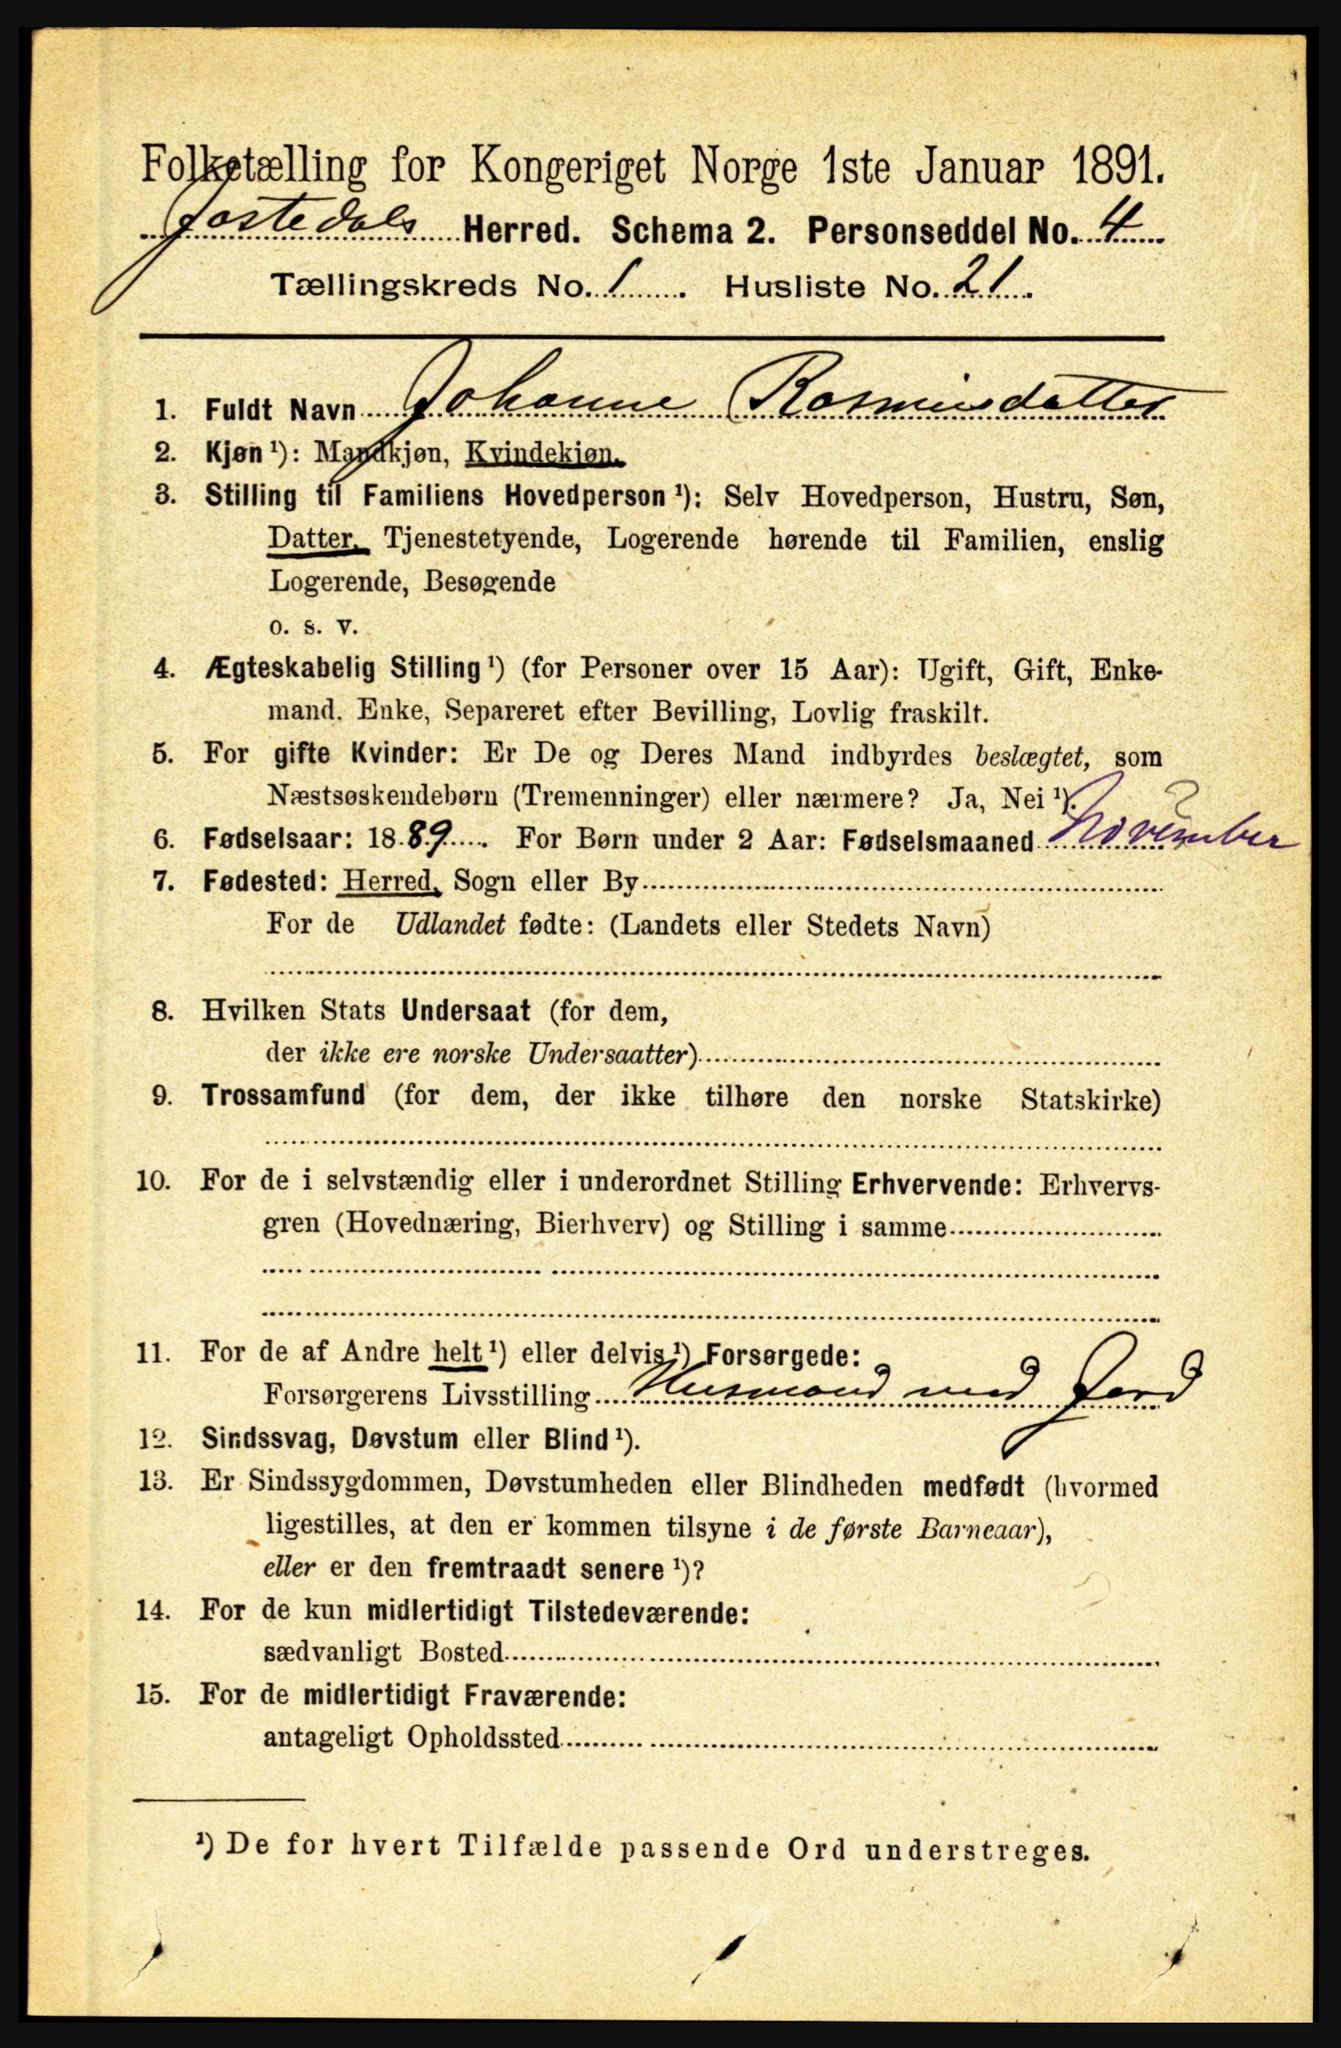 Folketælling for Kongeriget Norge 1ste Januar 1891.
Jostedals Herred. Schema 2. Personseddel No. 4
Tællingskreds No. 1. Husliste No. 21.
1. Fuldt Navn Johanne Rasmusdatter
2. Kjøn ¹): Mandkjøn, Kvindekjøn.
3. Stilling til Familiens Hovedperson ¹): Selv Hovedperson, Hustru, Søn,
Datter, Tjenestetyende, Logerende hørende til Familien, enslig
Logerende, Besøgende
o. s. v.
4. Ægteskabelig Stilling ¹) (for Personer over 15 Aar): Ugift, Gift, Enke-
mand, Enke, Separeret efter Bevilling, Lovlig fraskilt.
5. For gifte Kvinder: Er De og Deres Mand indbyrdes beslægtet, som
Næstsøskendebørn (Tremenninger) eller nærmere? Ja, Nei ¹).
6. Fødselsaar: 1889. For Børn under 2 Aar: Fødselsmaaned November
7. Fødested: Herred, Sogn eller By
For de Udlandet fødte: (Landets eller Stedets Navn)
8. Hvilken Stats Undersaat (for dem,
der ikke ere norske Undersaatter)
9. Trossamfund (for dem, der ikke tilhøre den norske Statskirke)
10. For de i selvstændig eller i underordnet Stilling Erhvervende: Erhvervs-
gren (Hovednæring, Bierhverv) og Stilling i samme
11. For de af Andre helt ¹) eller delvis ¹) Forsørgede:
Forsørgerens Livsstilling Husmand med Jord
12. Sindssvag, Døvstum eller Blind ¹).
13. Er Sindssygdommen, Døvstumheden eller Blindheden medfødt (hvormed
ligestilles, at den er kommen tilsyne i de første Barneaar),
eller er den fremtraadt senere ¹)?
14. For de kun midlertidigt Tilstedeværende:
sædvanligt Bosted
15. For de midlertidigt Fraværende:
antageligt Opholdssted
¹) De for hvert Tilfælde passende Ord understreges.